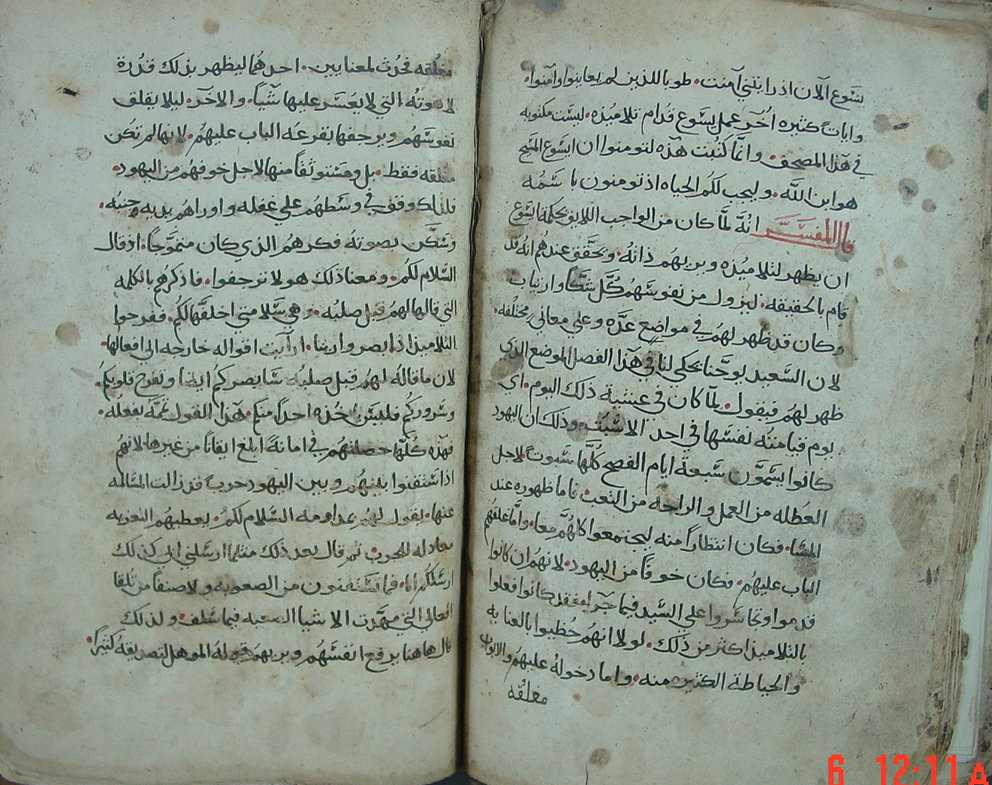 يسوع الآن اذ رايتني آمنت. طوبا للذين لم يعاينوا وآمنوا.
وايات كثيره اُخر عمل يسوع قدام تلاميذه ليست مكتوبه
في هذا المصحف. وانما كُتبت هذه لتومنوا ان ايسوع المسيح
هو ابن الله. وليجب لكم الحياه اذ تومنون باسمه
قال المفسر انه لما كان من الواجب اللايق بحكمة ايسوع
ان يظهر لتلاميذه ويريهم ذاته. وتحقق عندهم انه قد
قام بالحقيقه. ليزول من نفوسهم كل شك وارتياب
وكان قد ظهر لهم في مواضع عده وعلى معاني مختلفه.
لان السعيد يوحنا يحكي لنا في هذا الفصل الموضع الذي
ظهر لهم فيقول. لما كان في عشية ذلك اليوم. اي
يوم قيامته نفسها في احد الاسبت. وذلك ان اليهود
كانوا يسمون سبعة ايام الفصح كلها سبوت لاجل
العطله من العمل والراحه من التعب. فاما ظهوره عند
المسا. فكان انتظاراً منه ليجتمعوا كلهم معا. واما غلقهم
الباب عليهم. فكان خوفاً من اليهود. لانهم ان كانوا
قد هموا وتجاسروا على السيد فيما جرا فقد كانوا فعلوا
بالتلاميذ اكثر من ذلك. لولا انهم حُظيوا بالعنايه
والحياطة الكثيره منه. واما دخوله عليهم والابواب
مغلقه
مغلقه فحُدث لمعنايين. احدهما ليظهر بذلك قدرة
لاهوته التي لا يعسر عليها شياً. والاخر. ليلا يقلق
نفوسهم ويرجفها بقرعه الباب عليهم. لانها لم تكن
مغلقه فقط. بل ومستوثقاً منها لاجل خوفهم من اليهود.
فلذلك وقف في وسطهم على غفله واوراهم يديه وجنبه.
وسكن بصوته فكرهم الذي كان متموجاً. اذ قال
السلام لكم. ومعنا ذلك هو لا ترجفوا. فاذكرهم بالكلمه
التي قالها لهم قبل صلبه. وهي سلامتي اخلفها لكم. ففرحوا
التلاميذ اذ ابصروا ربنا. ارايت اقواله خارجه الى افعالها.
لان ما قاله لهم قبل صلبه سابصركم ايضا وتفرح قلوبكم.
وسروركم فليس ياخذه احداً منكم. هذا القول تممه بفعله.
فهذه كلها حصلتهم في امانة ابلغ ايقاناً من غيرها. لانهم
اذ اشتفنوا بينهم وبين اليهود حرب قد زالت المسالمه
عنها. يقول لهم بمداومه السلام لكم. يعطيهم التعزيه
معادله للحرب. ثم قال بعد ذلك مثلما ارسلني ابي كذلك
ارسلكم انا. فما تستعفون من الصعوبه ولا صنفاً من تلقا
افعالي التي مهدت الاشيا الصعبه فيما سلف. ولذلك
قال هاهنا يرفع انفسهم ويريهم قوله الموهل لتصديقه كثيرا.